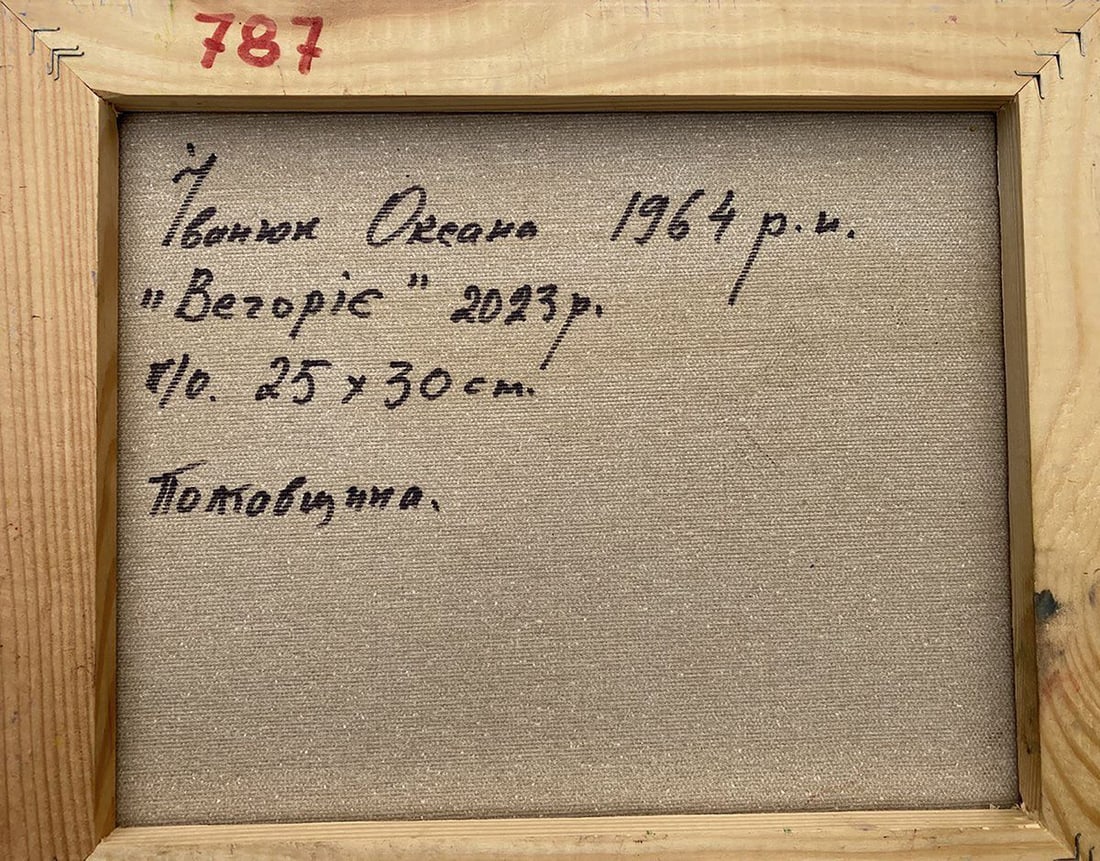 787
Іванюк Оксана 1964 р.н.
"Вечоріє" 2023р.
п/о. 25 х 30 см.
Полтавщина.